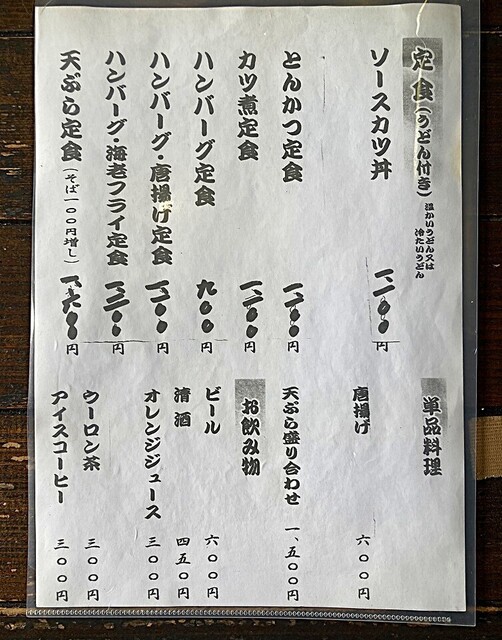 定食(うどん付き)温かいうどん又は
冷たいうどん
ソースカツ丼 円
とんかつ定食 円
カツ煮定食 円
ハンバーグ定食 九〇〇円
ハンバーグ・唐揚げ定食 円
ハンバーグ・海老フライ定食 円
天ぷら定食(そば一〇〇円増し) 一、六〇〇円
単品料理
唐揚げ 六〇〇円
天ぷら盛り合わせ 一、五〇〇円
お飲み物
ビール 六〇〇円
清酒 四五〇円
オレンジジュース 三〇〇円
ウーロン茶 三〇〇円
アイスコーヒー 三〇〇円